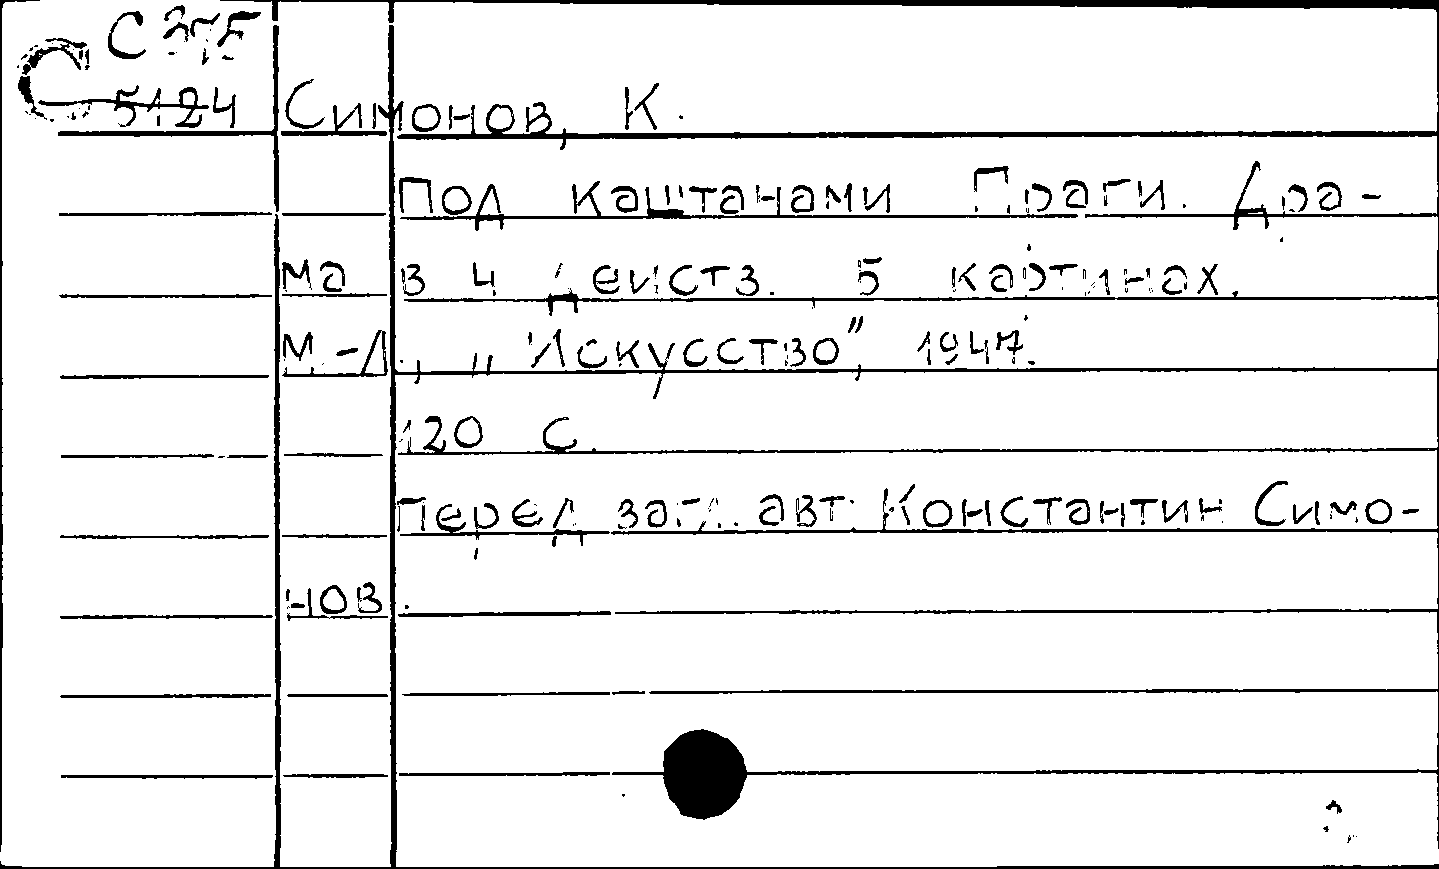 С 375
С 5124
Симонов, К.
Под каштанами Праги. Дра-
ма в 4 действ., 5 картинах.
М.-Л., „Искусство”, 1947.
120 с.
Перед загл. авт. Константин Симо-
нов.